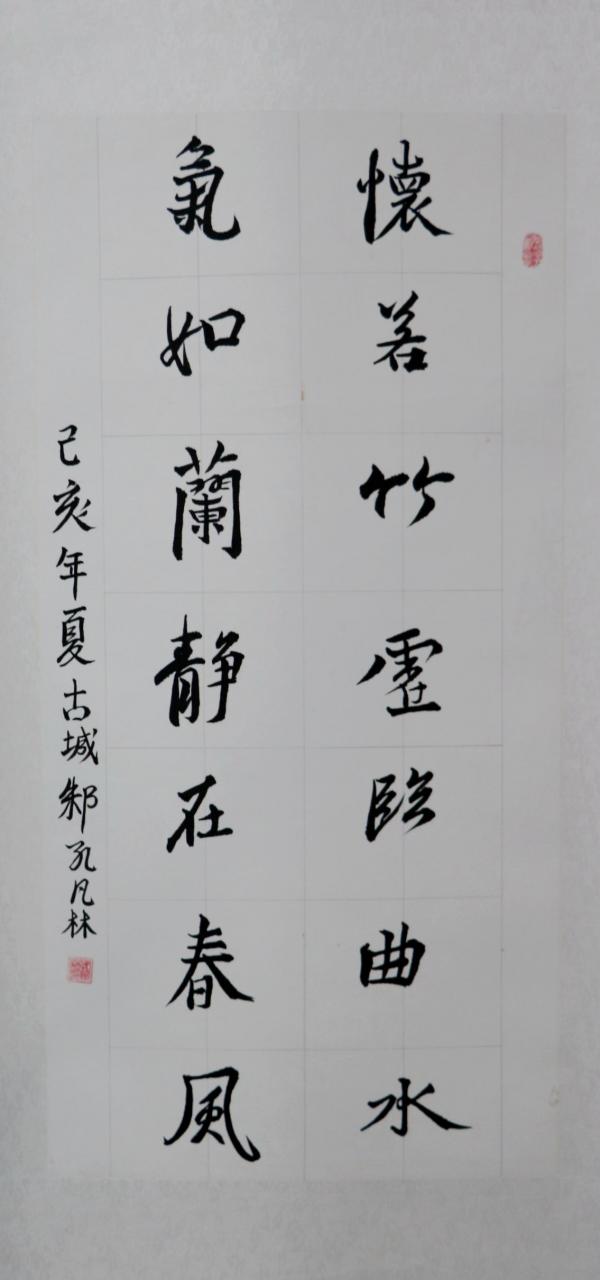 懷若竹虛臨曲水
氣如蘭靜在春風
己亥年夏古城邾孔凡林